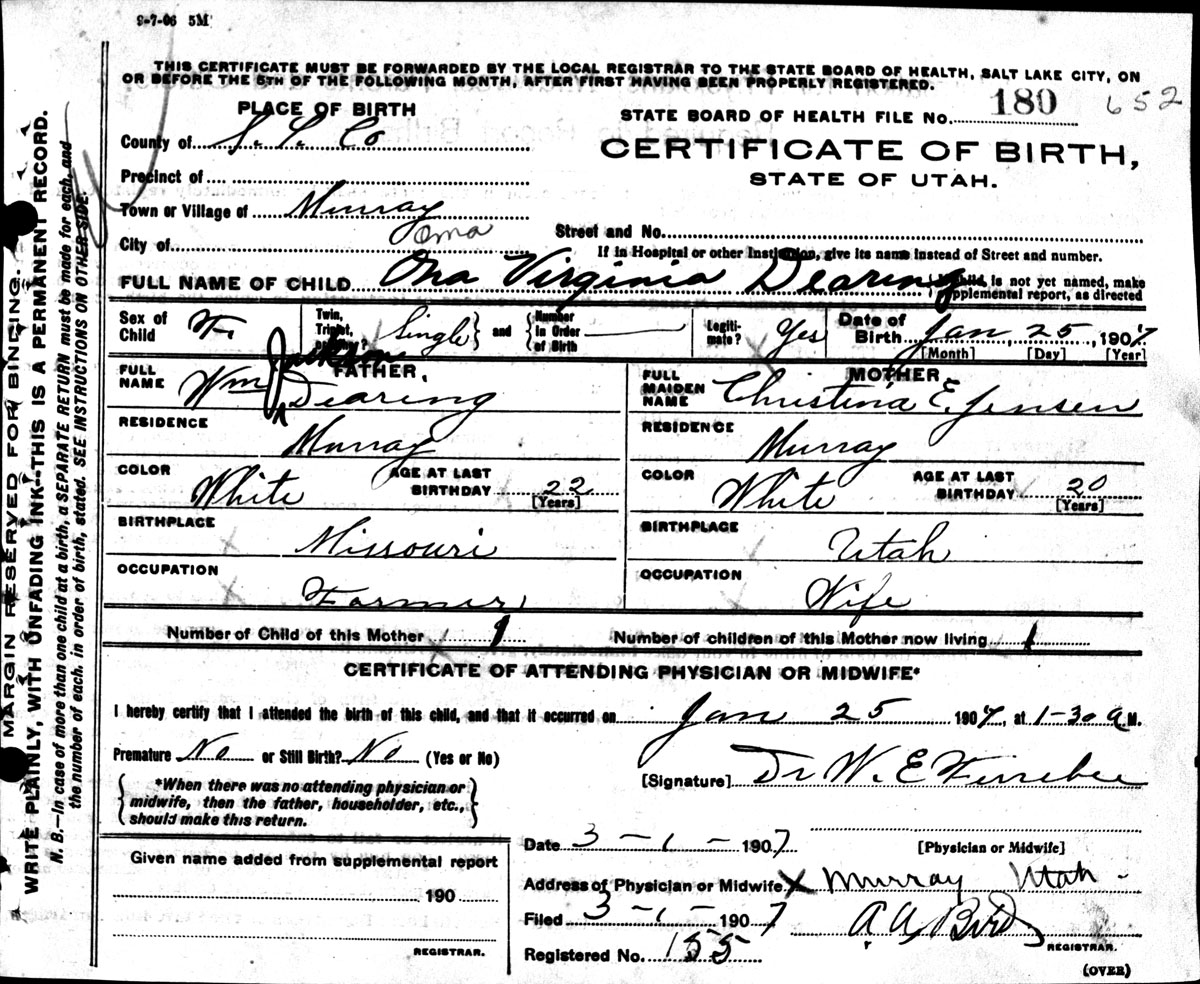 9-7-06 5M
THIS CERTIFICATE MUST BE FORWARDED BY THE LOCAL REGISTRAR TO THE STATE BOARD OF HEALTH, SALT LAKE CITY, ON
OR BEFORE THE 5TH OF THE FOLLOWING MONTH, AFTER FIRST HAVING BEEN PROPERLY REGISTERED.
PLACE OF BIRTH
STATE BOARD OF HEALTH FILE No. 180 652
County of S. L. Co
CERTIFICATE OF BIRTH,
STATE OF UTAH.
Precinct of
Town or Village of Murray
Street and No.
City of
Oma
If in Hospital or other Institution, give its name instead of Street and number.
FULL NAME OF CHILD Ona Virginia Dearing
{If child is not yet named, make
supplemental report, as directed
Sex of Child F.
Twin, Triplet, or other? Single
and
Number in Order of Birth
Legiti-mate? Yes
Date of Birth Jan 25, 1907
[Month] [Day] [Year]
FATHER.
FULL NAME Wm Jackson Dearing
RESIDENCE
Murray
COLOR White
AGE AT LAST BIRTHDAY 22
[Years]
BIRTHPLACE
Missouri
OCCUPATION
Farmer
MOTHER
FULL MAIDEN NAME Christina E. Jensen
RESIDENCE
Murray
COLOR White
AGE AT LAST BIRTHDAY 20
[Years]
BIRTHPLACE
Utah
OCCUPATION
Wife
Number of Child of this Mother 1
Number of children of this Mother now living 1
CERTIFICATE OF ATTENDING PHYSICIAN OR MIDWIFE*
I hereby certify that I attended the birth of this child, and that it occurred on Jan 25 1907, at 1-30 a M.
Premature No or Still Birth? No (Yes or No)
[Signature] Dr W. E Ferrebee
*When there was no attending physician or
midwife, then the father, householder, etc.,
should make this return.
[Physician or Midwife]
Date 3-1-1907
Address of Physician or Midwife X Murray Utah
Filed 3-1-1907 A A Bird
REGISTRAR.
Registered No. 155
(OVER)
Given name added from supplemental report
190
REGISTRAR.
MARGIN RESERVED FOR BINDING.
WRITE PLAINLY, WITH UNFADING INK--THIS IS A PERMANENT RECORD.
N. B.—In case of more than one child at a birth, a SEPARATE RETURN must be made for each, and
the number of each, in order of birth, stated. SEE INSTRUCTIONS ON OTHER SIDE.